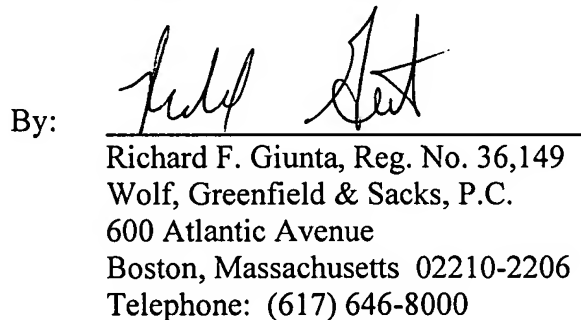 By:
Richard F. Giunta, Reg. No. 36,149
Wolf, Greenfield & Sacks, P.C.
600 Atlantic Avenue
Boston, Massachusetts 02210-2206
Telephone: (617) 646-8000